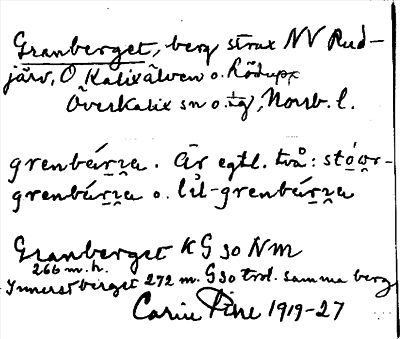 Granberget, berg strax NV Rud-
järv, O Kalixälven o. Rödupp
Överkalix sn o. tg, Norrb. l.
grenbárza. Är egtl. två: stóor-
grenbárza o. lil-grenbárza
Granberget KG 30 NM
266 m. h.
Innerstberget 272 m. G30 trol. samma berg
Carin Pihl 1919-27